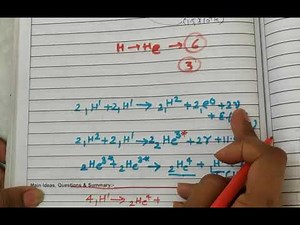 H → He → 6
3
2 ₁H¹ + 2 ₁H¹ → 2 ₁H² + 2 ₁e⁰ + 2ν
2 ₁H² + 2 ₁H¹ → 2 ₂He³⁺ + 2γ +
₂He³⁺ + ₂He³⁺ → ₂He⁴ +
Main Ideas, Questions & Summary:-
4 ₁H¹ → ₂He⁴ +